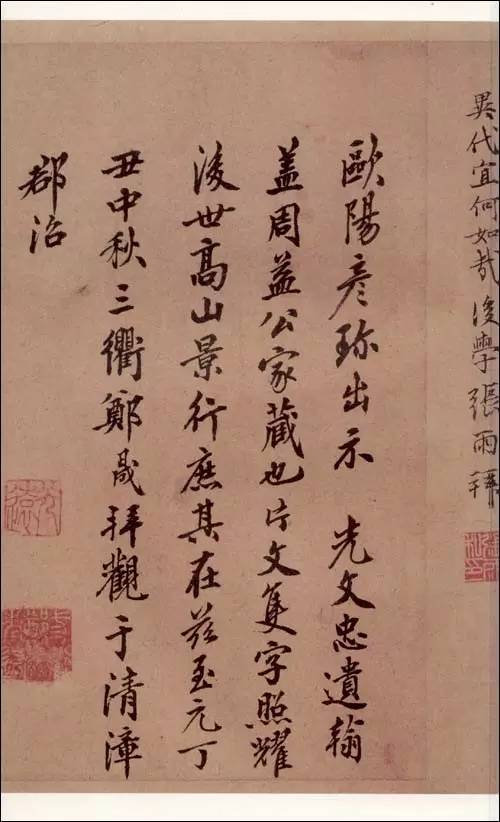 異代宜何如哉後學張雨拜
歐陽彥珎出示 先文忠遺翰
蓋周益公家藏也片文隻字照耀
後世高山景行庶其在茲至元丁
丑中秋三衢鄭晟拜觀于清漳
郡治